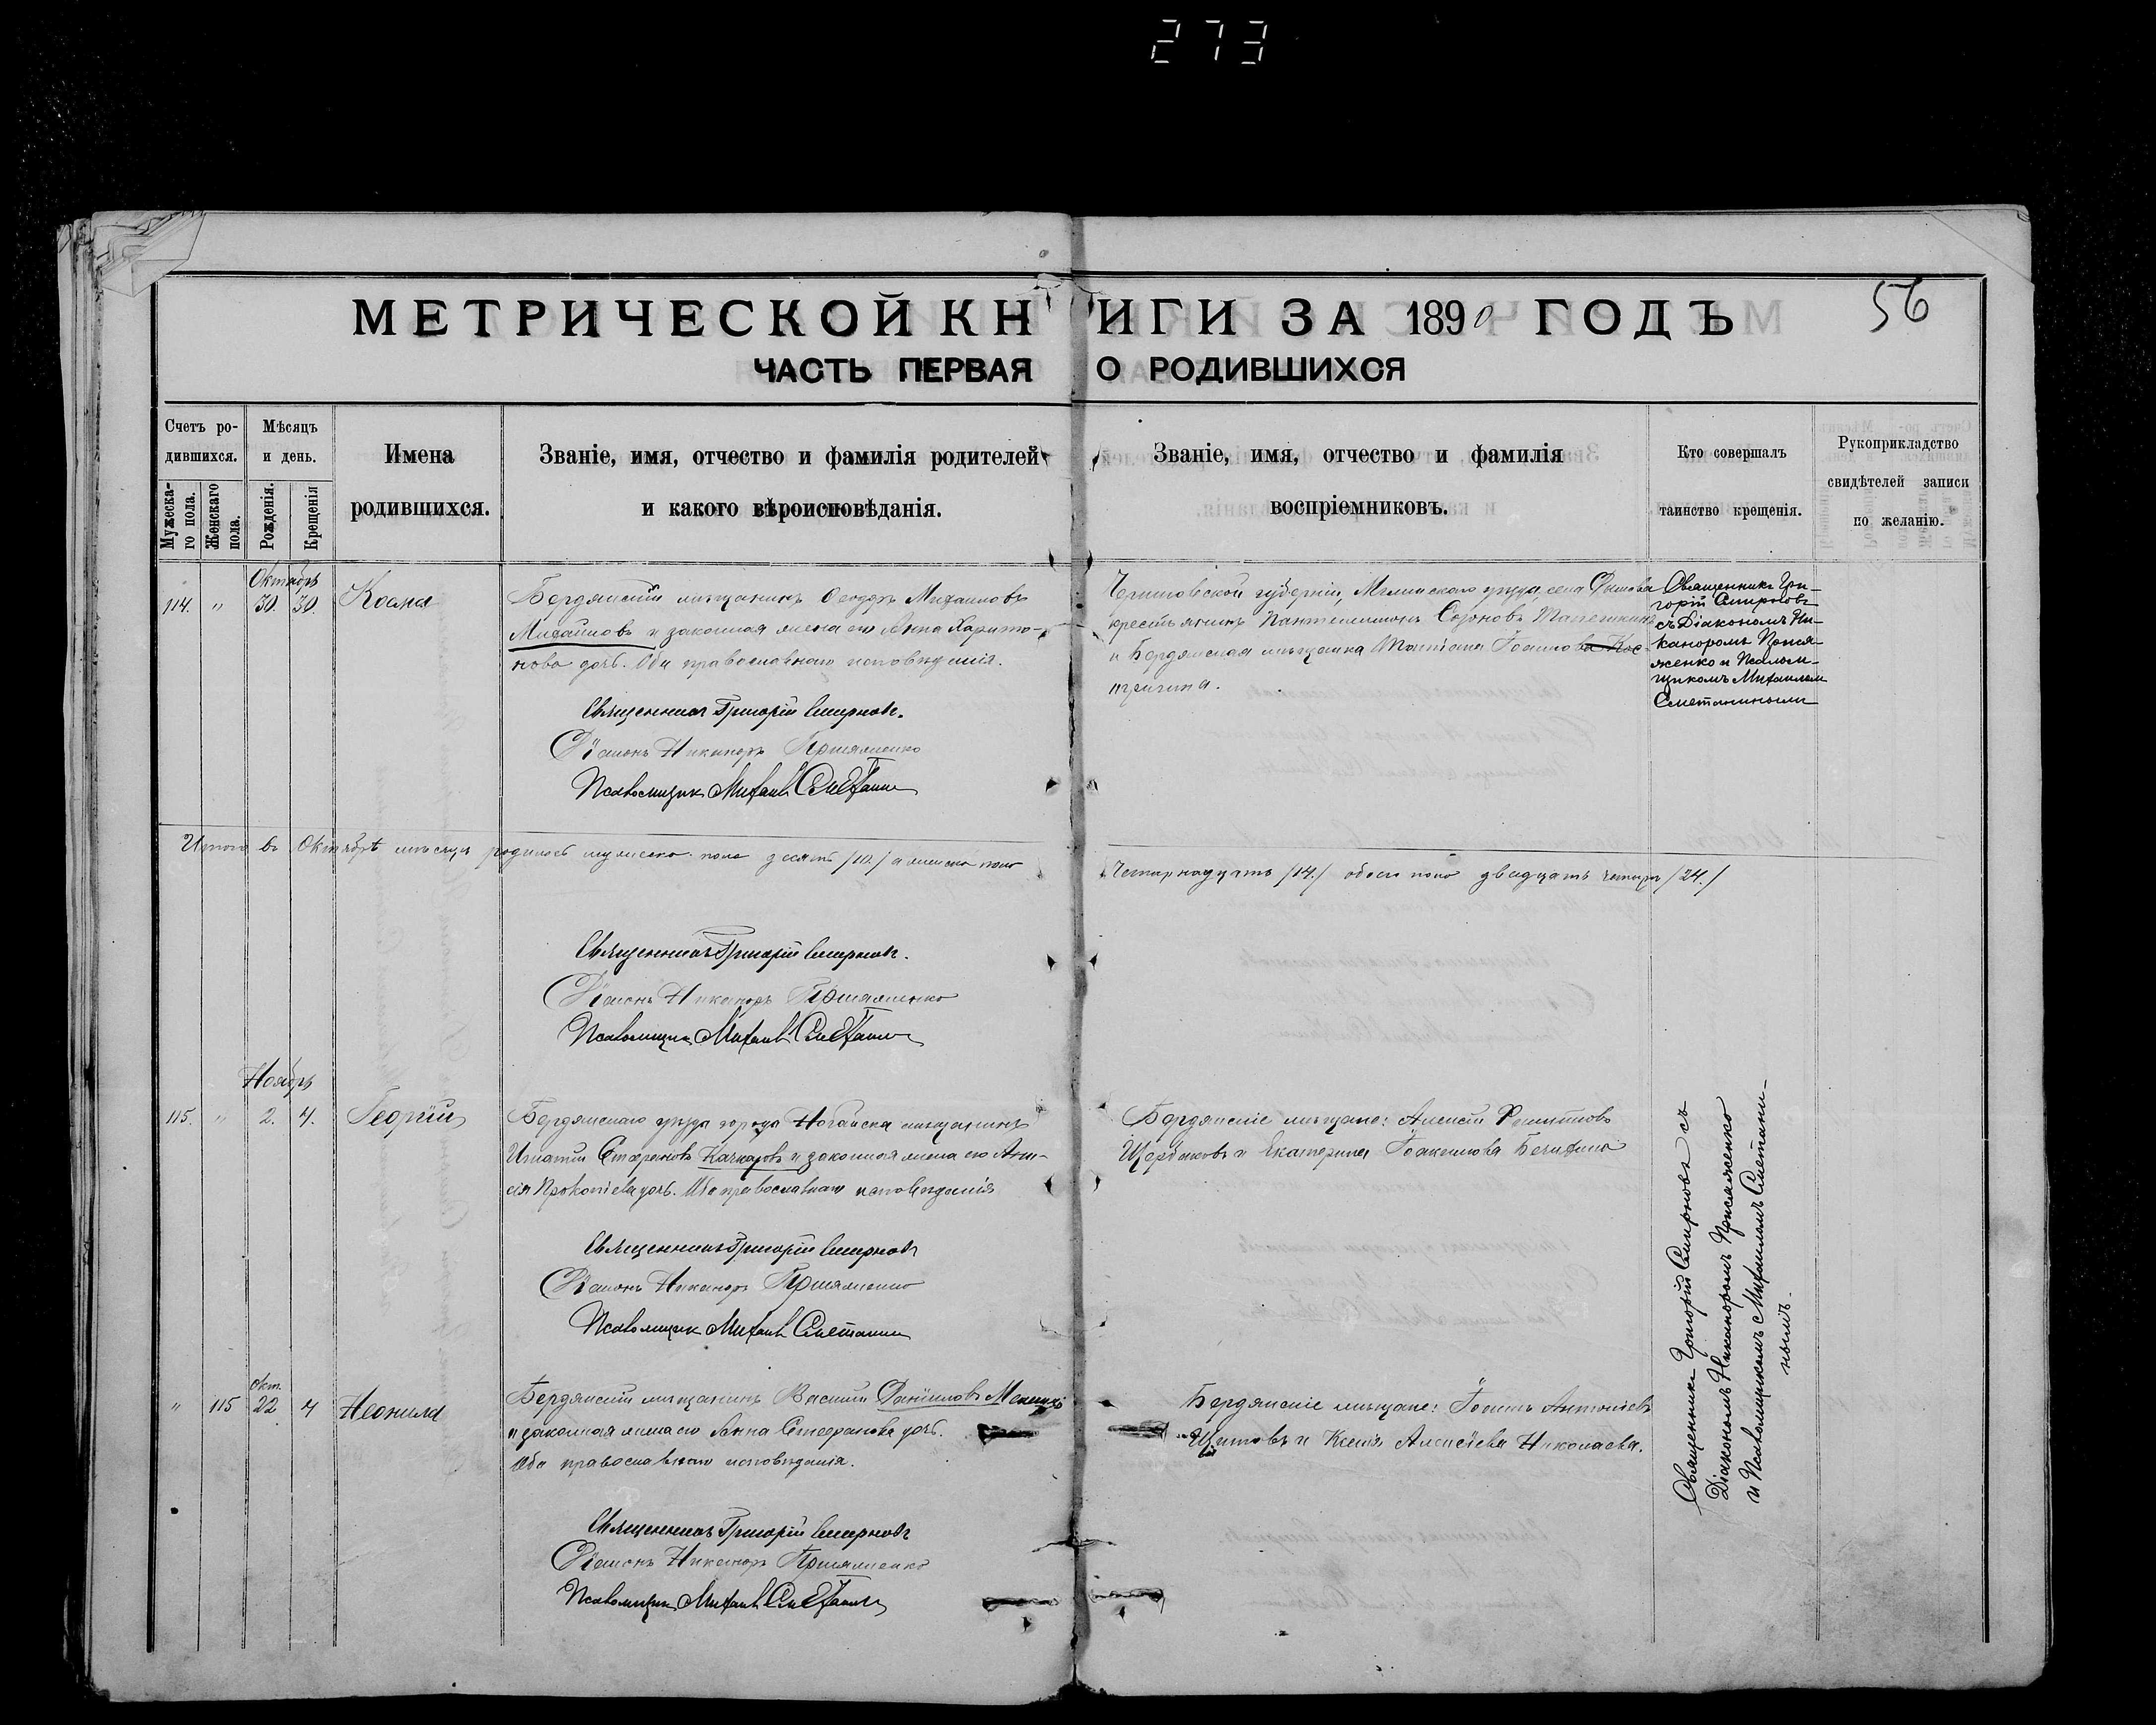 273
МЕТРИЧЕСКОЙ КНИГИ ЗА 1890 ГОДЪ
56
ЧАСТЬ ПЕРВАЯ О РОДИВШИХСЯ
Счетъ ро-
дившихся.
Мужеска-
го пола.
Женскаго
пола.
Мѣсяцъ
и день.
Рожденія.
Крещенія
Имена
родившихся.
Званіе, имя, отчество и фамилія родителей
и какого вѣроисповѣданія.
Званіе, имя, отчество и фамилія
воспріемниковъ.
Кто совершалъ
таинство крещенія.
Рукоприкладство
свидѣтелей записи
по желанію.
Октябрь
114. " 30. 30.
Бердянскій мѣщанинъ Ѳеодоръ Михаиловъ
Михайловъ и законная жена его Анна Харито-
нова дочь. Оба православнаго исповѣданія.
Священникъ Григорій Смирновъ.
Діаконъ Никаноръ Присяженко
Псаломщикъ Михаилъ Сметанин
Черниговской губерніи, Мглинскаго уѣзда, села
крестьянинъ Пантелеимонъ Созоновъ
и Бердянская мѣщанка Татіана Іоаннова
Священникъ Гри-
горій Смирновъ
съ Діакономъ Ни-
каноромъ Прися-
женко и Псалом-
щикомъ Михаиломъ
Сметанинымъ
Итого въ Октябрѣ мѣсяцѣ родилось мужеска пола десять /10./ а женска пола
Четырнадцать /14./ обоего пола двадцать четыре /24./
Священникъ Григорій Смирновъ.
Діаконъ Никаноръ Присяженко
Псаломщикъ Михаилъ Сметанин
Ноябрь
115. " 2. 4. Георгій
Бердянскаго уѣзда города Ногайска мѣщанинъ
Игнатій Стефановъ Качкаровъ и законная жена его Ани-
сія Прокопіева дочь. Оба православнаго исповѣданія
Священникъ Григорій Смирновъ
Діаконъ Никаноръ Присяженко
Псаломщикъ Михаилъ Сметанин
Бердянскіе мѣщане: Алексѣй Филиповъ
Щербаковъ и Екатерина Іоакимова
Священникъ Григорій Смирновъ съ
Діакономъ Никаноромъ Присяженко
и Псаломщикомъ Михаиломъ Сметани-
нымъ.
Окт.
" 115 22 4 Неонила
Бердянскій мѣщанинъ Василій Даніиловъ
и законная жена его Анна Стефанова дочь.
Оба православнаго исповѣданія.
Священникъ Григорій Смирновъ
Діаконъ Никаноръ Присяженко
Псаломщикъ Михаилъ Сметанин
Бердянскіе мѣщане: Іоаннъ Антоніевъ
Щитовъ и Ксенія Алексіева Николаева.